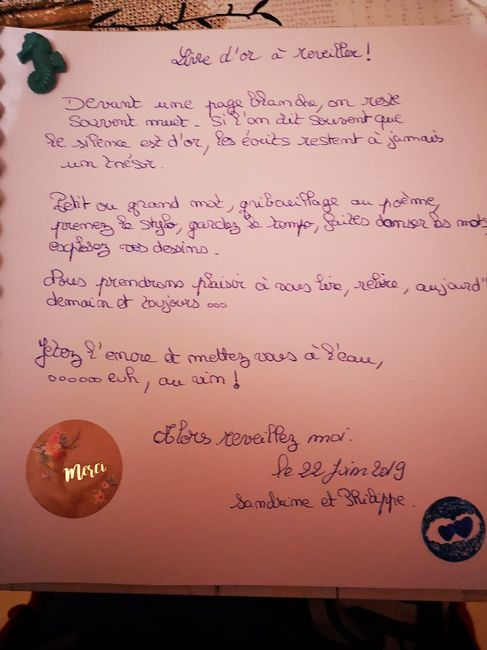 Livre d'or à reveiller !
Devant une page blanche, on reste
souvent muet. Si l'on dit souvent que
le silence est d'or, les écrits restent à jamais
un trésor.
Petit ou grand mot, gribouillage au poème,
prenez le stylo, gardez le tempo, faites danser les mots
explosez vos dessins.
Nous prendrons plaisir à vous lire, relire, aujourd'
demain et toujours ...
Jetez l'encre et mettez vous à l'eau,
...... euh, au vin !
Alors reveillez moi.
le 22 Juin 2019
Sandrine et Philippe.
Merci